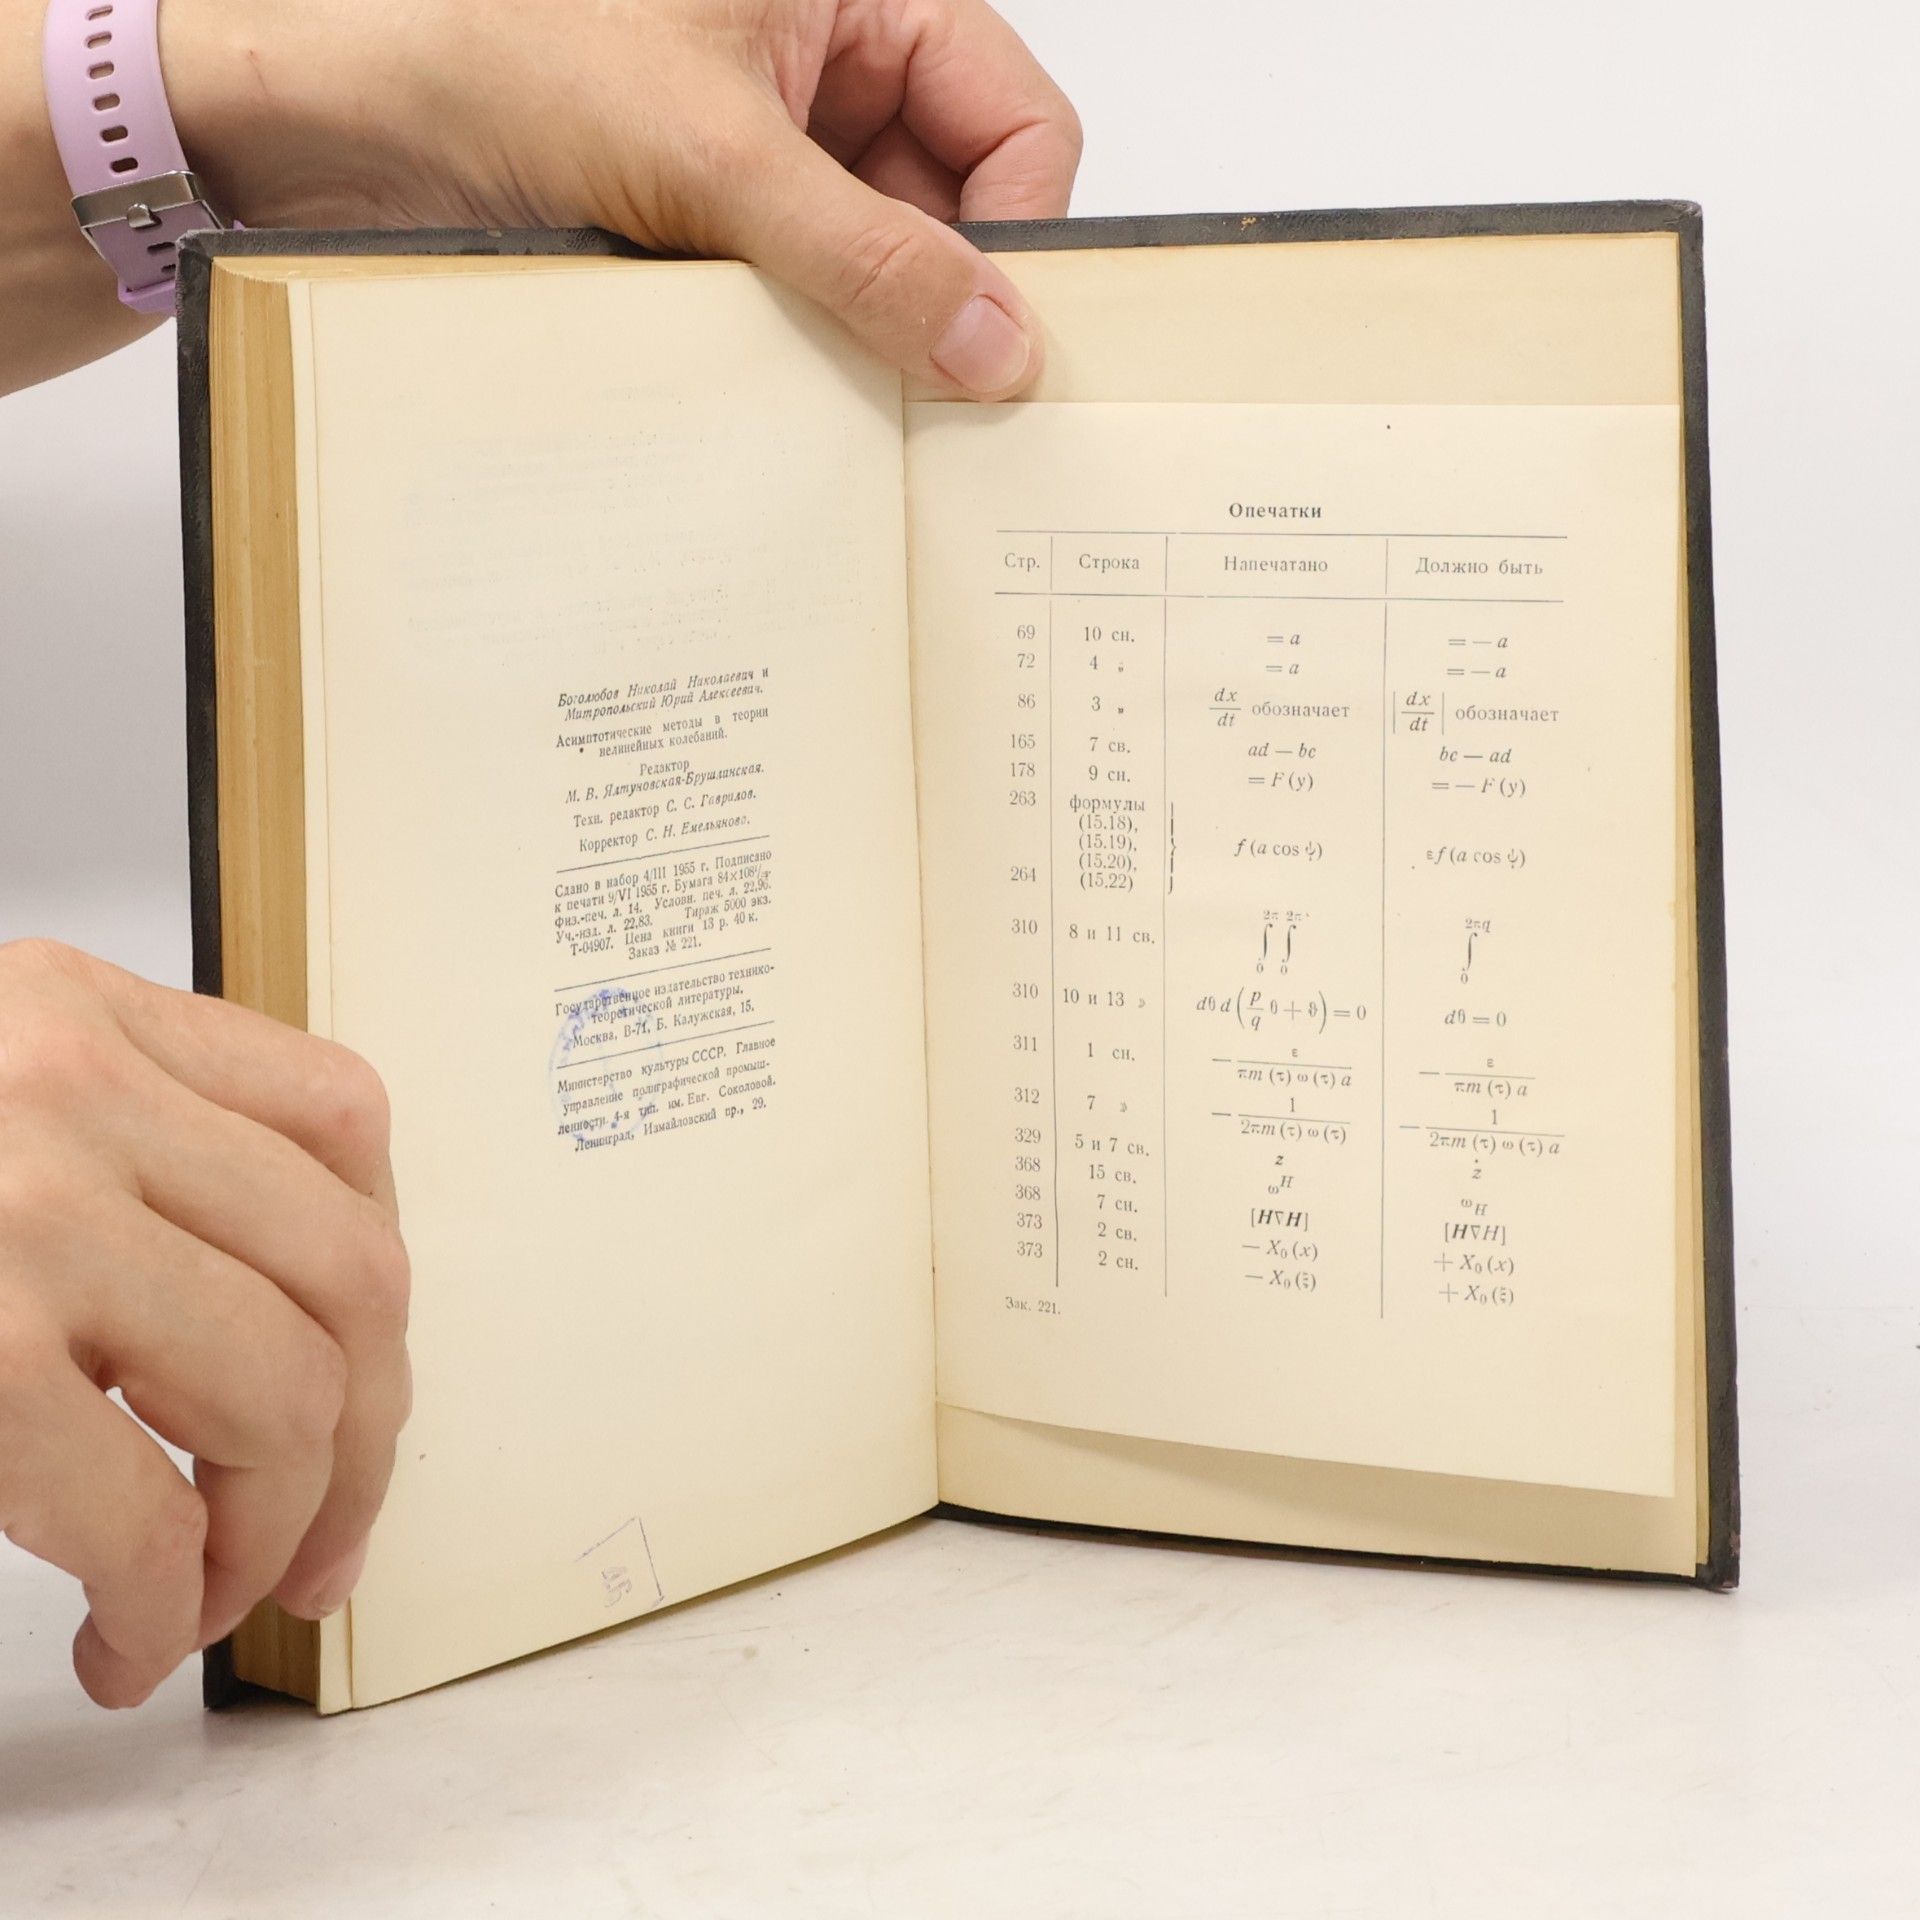 Боголюбов Николай Николаевич и
Митропольский Юрий Алексеевич.
Асимптотические методы в теории
нелинейных колебаний.
Редактор
М. В. Ялтуновская-Брушлинская.
Техн. редактор С. С. Гаврилов.
Корректор С. Н. Емельянова.
Сдано в набор 4/III 1955 г. Подписано
к печати 9/VI 1955 г. Бумага 84×108
Физ.-печ. л. 14. Условн. печ. л. 22,96.
Уч.-изд. л. 22,83. Тираж 5000 экз.
Т-04907. Цена книги 13 р. 40 к.
Заказ № 221.
Государственное издательство технико-
теоретической литературы.
Москва, В-71, Б. Калужская, 15.
Министерство культуры СССР. Главное
управление полиграфической промыш-
ленности. 4-я тип. им. Евг. Соколовой.
Ленинград, Измайловский пр., 29.
Опечатки
Стр. Строка Напечатано Должно быть
69 10 сн. = a = — a
72 4 „ = a = — a
86 3 „ dx/dt обозначает |dx/dt| обозначает
165 7 св. ad — bc bc — ad
178 9 сн. = F (y) = — F (y)
263 формулы
(15.18),
(15.19), f (a cos ψ) εf (a cos ψ)
(15.20),
264 (15.22)
310 8 и 11 св. ∫₀^2π ∫₀^2π ∫₀^2πq
310 10 и 13 » dθ d (p/q θ + ϑ) = 0 dθ = 0
311 1 сн. — ε/πm (τ) ω (τ) a — ε/πm (τ) a
312 7 » — 1/2πm (τ) ω (τ) — 1/2πm (τ) ω (τ) a
329 5 и 7 св. z ż
368 15 св. ω^H ω_H
368 7 сн. [H∇H] [H∇H]
373 2 св. — X₀ (x) + X₀ (x)
373 2 сн. — X₀ (ξ) + X₀ (ξ)
Зак. 221.